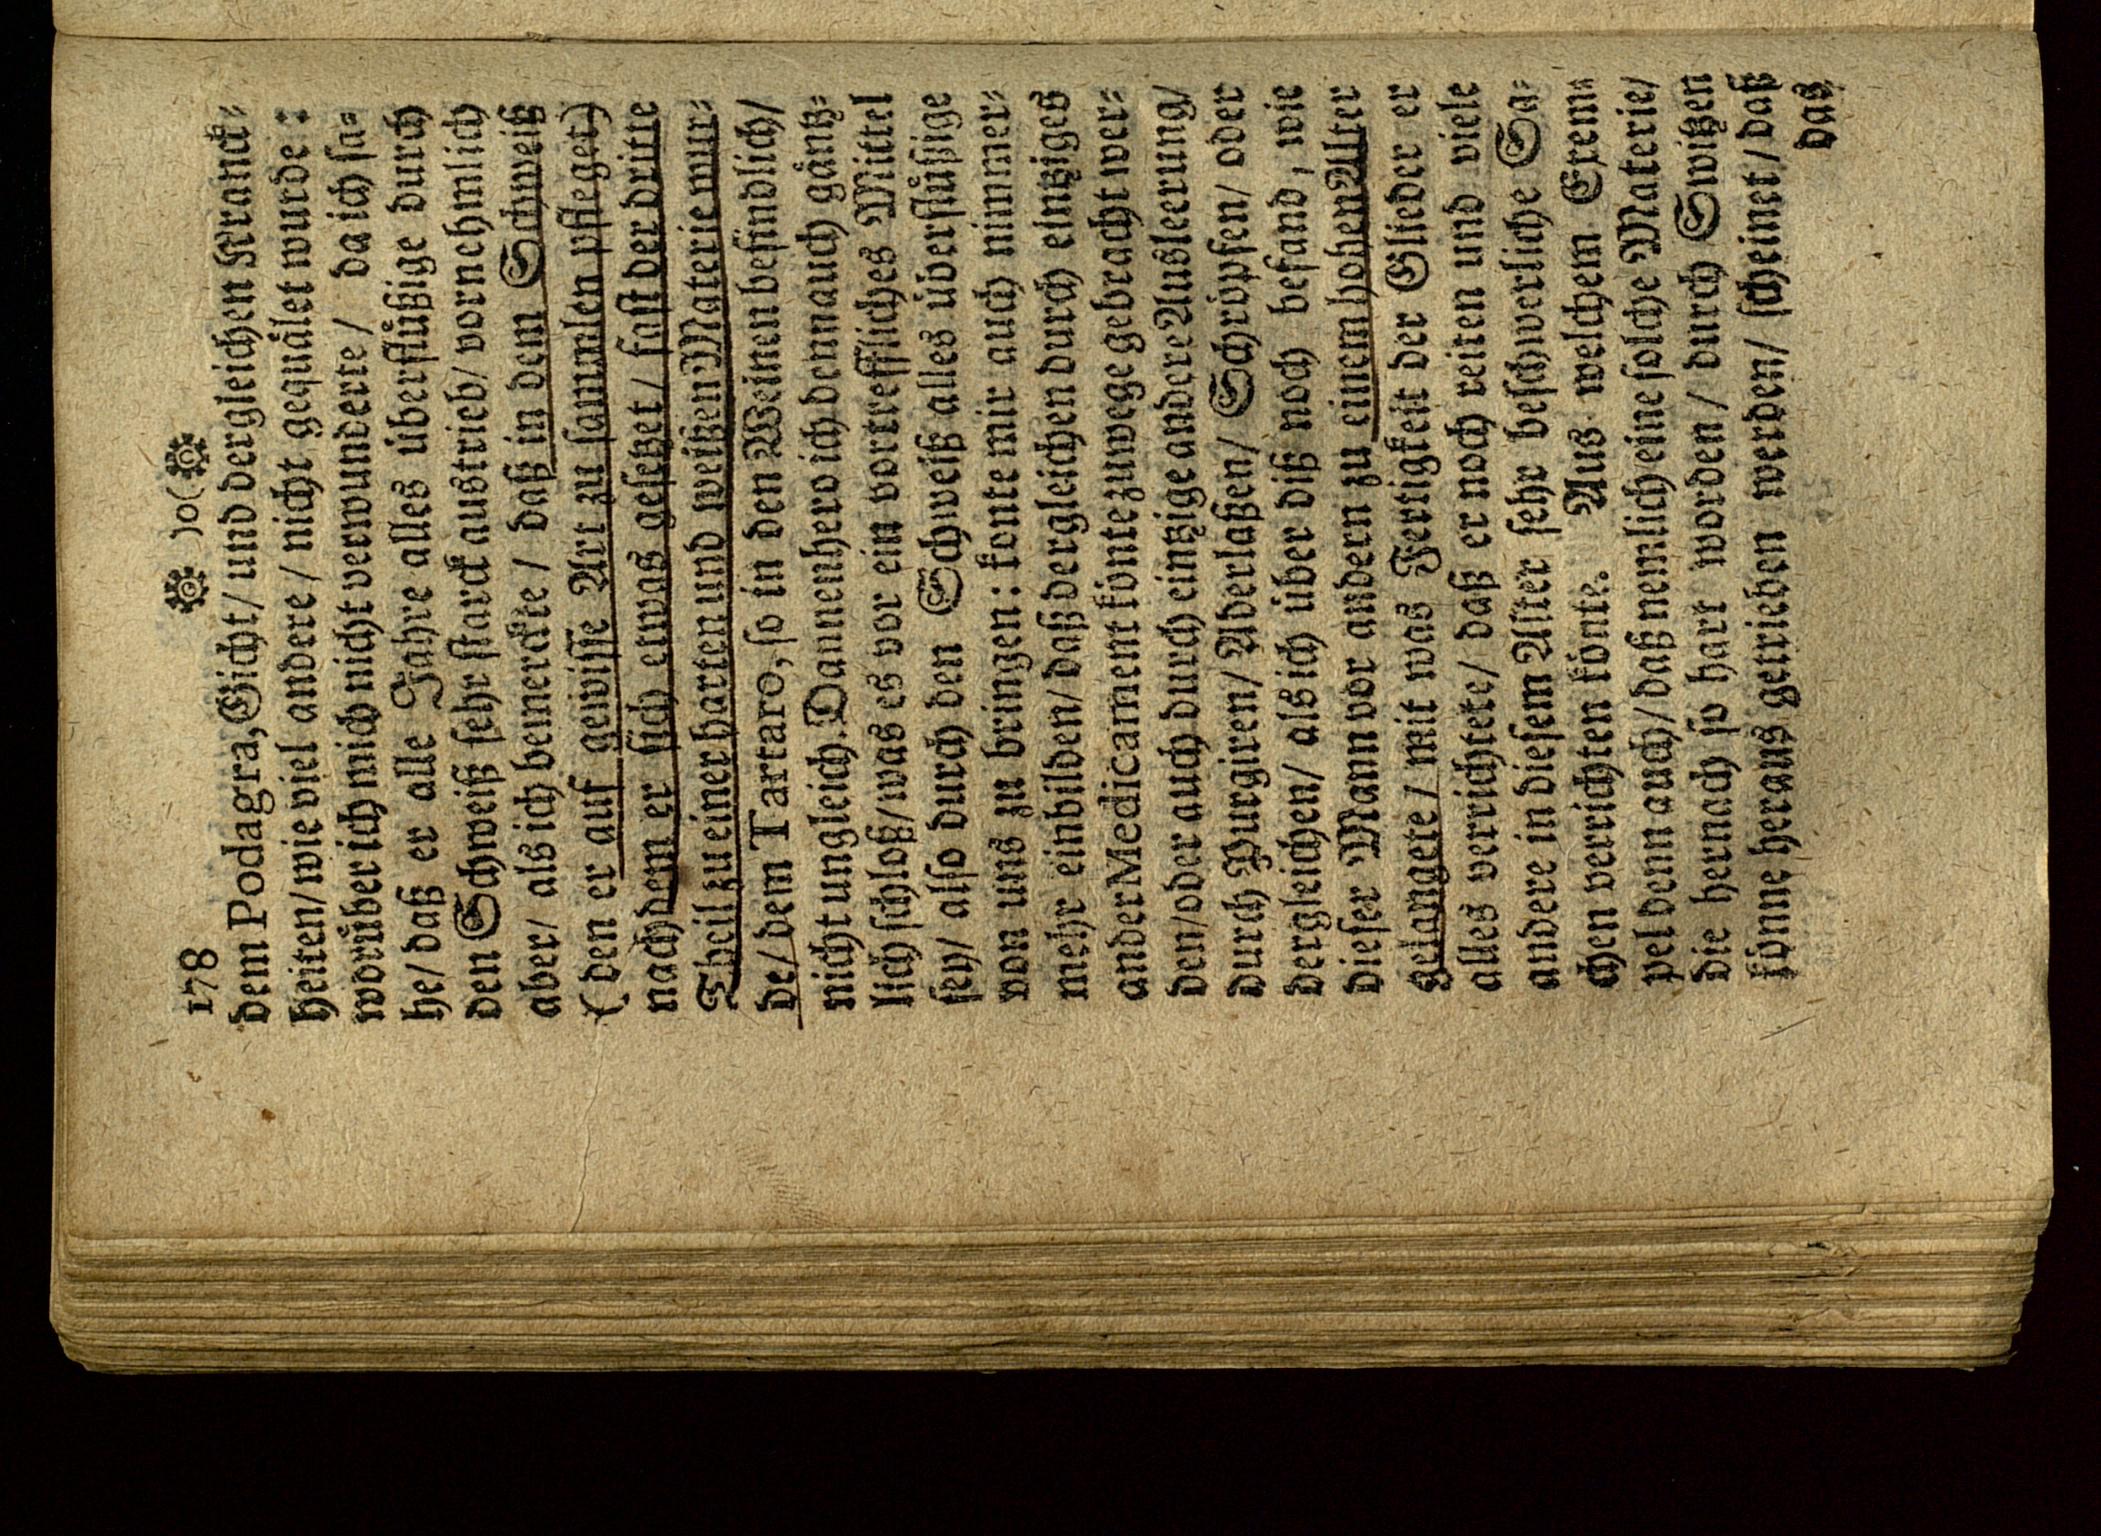 178 )o(
dem Podagra, Gicht/ und dergleichen Kranck-
heiten/ wie viel andere / nicht gequålet wurde :
worůber ich mich nicht verwunderte / da ich sa-
he/ daß er alle Jahre alles ůberflůßige durch
den Schweiß sehr starck austrieb/ vornehmlich
aber/ als ich bemerckte / daß in dem Schweiß
( den er auf gewisse Art zu sammlen pfleget)
nachdem er sich etwas gesetzet / fast der dritte
Theil zu einer harten und weißen Materie wur-
de/ dem Tartaro, so in den Weinen befindlich/
nicht ungleich. Dannenhero ich dennauch gåntz-
lich schloß/ was es vor ein vortreffliches Mittel
sey/ also durch den Schweiß alles ůberflůßige
von uns zu bringen: konte mir auch nimmer-
mehr einbilden/ daß dergleichen durch eintziges
ander Medicament kőnte zuwege gebracht wer-
den/ oder auch durch eintzige andere Ausleerung/
durch Purgiren/ Aderlaßen/ Schrőpfen/ oder
dergleichen/ als ich ůber diß noch befand, wie
dieser Mann vor andern zu einem hohen Alter
gelangete / mit was Fertigkeit der Glieder er
alles verrichtete/ daß er noch reiten und viele
andere in diesem Alter sehr beschwerliche Sa-
chen verrichten kőnte. Aus welchem Exem-
pel denn auch/ daß nemlich eine solche Materie/
die hernach so hart worden / durch Switzen
kőnne heraus getrieben werden/ scheinet / daß
das